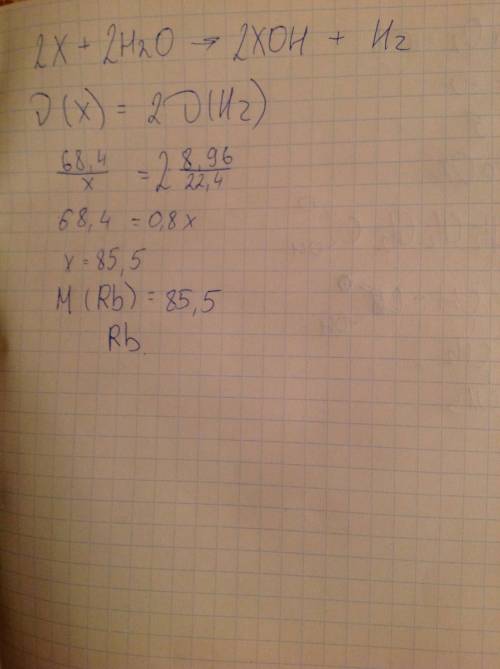 2X + 2H2O → 2XOH + H2
ν(X) = 2ν(H2)
68,4/x = 2 8,96/22,4
68,4 = 0,8x
x = 85,5
M(Rb) = 85,5
Rb.